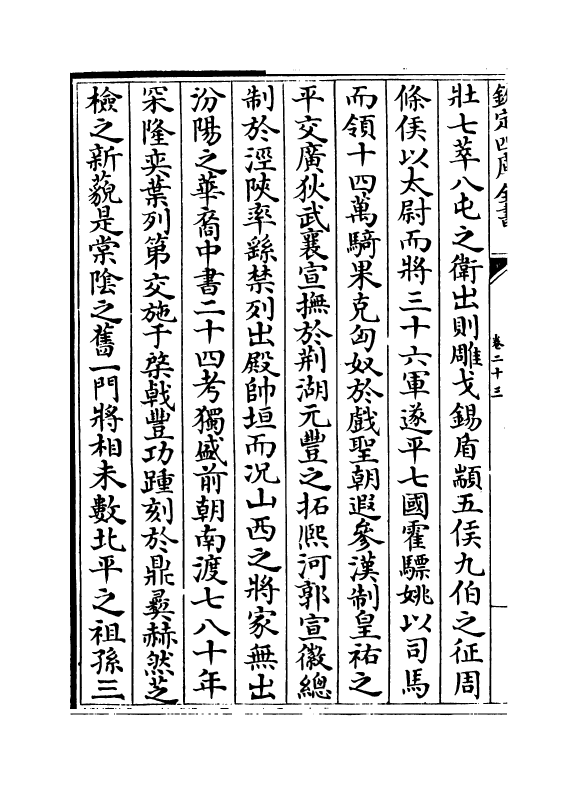 欽定四庫全書
卷二十三
壯七萃八屯之衛出則雕戈錫盾顓五侯九伯之征周
條侯以太尉而將三十六軍遂平七國霍驃姚以司馬
而領十四萬騎果克匈奴於戲聖朝遐參漢制皇祐之
平交廣狄武襄宣撫於荆湖元豐之拓熈河郭宣徽總
制於涇陜率繇禁列出殿帥垣而况山西之將家無出
汾陽之華裔中書二十四考獨盛前朝南渡七八十年
罙隆奕葉列第交施于棨戟豐功踵刻於鼎彞赫然芝
檢之新藐是棠隂之舊一門將相未數北平之祖孫三